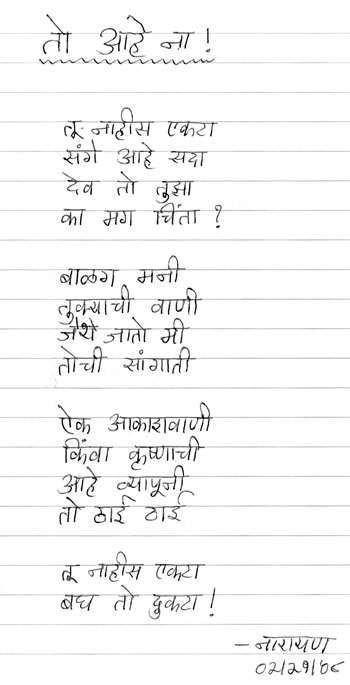 तो आहे ना !
तू नाहीस एकटा
संगे आहे सदा
देव तो तुझा
का मग चिंता ?
बाळग मनी
तुक्याची वाणी
जेथे जातो मी
तोची सांगाती
ऐक आकाशवाणी
किंवा कृष्णाची
आहे व्यापूनी
तो ठाई ठाई
तू नाहीस एकटा
बघ तो दुकटा !
– नारायण